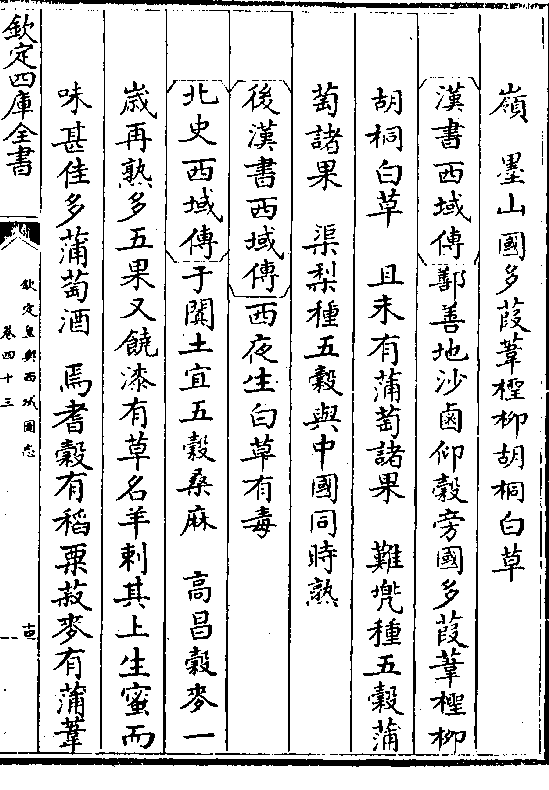 嶺　墨山國多葭葦檉柳胡桐白草
漢書西域傳鄯善地沙鹵仰榖旁國多葭葦檉柳
胡桐白草　且末有蒲萄諸果　難兠種五榖蒲
萄諸果　渠梨種五榖與中國同時熟
後漢書西域傳西夜生白草有毒
北史西域傳于闐土宜五榖桑麻　高昌榖麥一
歳再熟多五果又饒漆有草名羊刺其上生蜜而
味甚佳多蒲萄酒　焉耆榖有稻粟菽麥有蒲葦
欽定四庫全書
欽定皇輿西域圖志
卷四十三
十四